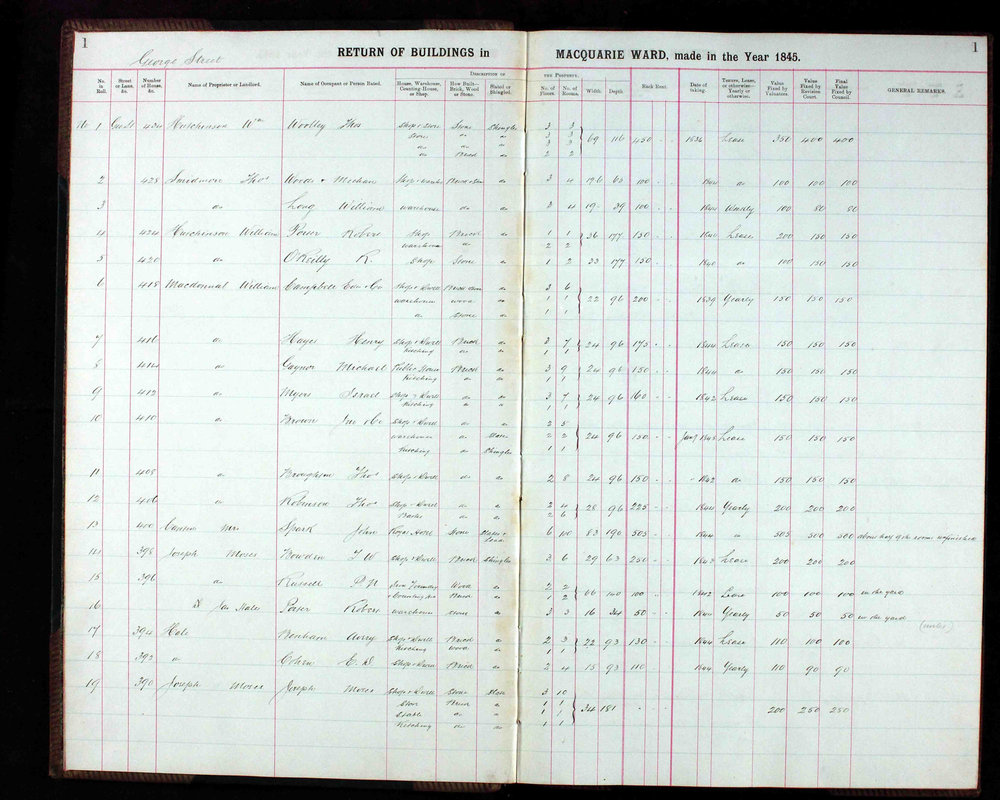 1
1
George Street
RETURN OF BUILDINGS in MACQUARIE WARD, made in the Year 1845.
DESCRIPTION OF THE PROPERTY.
No. in Roll. Street or Lane, &c. Number of House, &c. Name of Proprietor or Landlord. Name of Occupant or Person Rated. House, Warehouse, Counting-House or Shop. How Built—Brick, Wood or Stone. Slated or Shingled. No. of Floors. No. of Rooms. Width. Depth. Rack Rent. Date of taking. Tenure, Lease, or otherwise—Yearly or otherwise. Value Fixed by Valuators. Value Fixed by Revision Court. Final Value Fixed by Council. GENERAL REMARKS.
1 434 Hutchinson Wm Woolley Thos Shop & Store Stone Shingles 3 3
Store do 3 3 69 116 450 1836 Lease 350 400 400
3 3
Brick 2 2
2 428 Smidmore Thos Woods & Mechan 3 4 63 100 1844 100 100 100
3 Long William Warehouse 3 4 19 39 100 1844 Weekly 100 80 80
4 424 Hutchinson William Robert Shop Brick 1 1 36 177 150 1840 Lease 200 150 150
Warehouse 2 2
5 420 O'Reilly R. Shop Stone 1 2 33 177 150 1840 100 150 150
6 418 Macdonnal William Campbell & Co Shop & Dwell 3 6
warehouse wood 1 1 22 96 200 1839 Yearly 150 150 150
Stone 1 1
7 416 Hayes Henry Shop & Dwell Brick 3 7 24 96 175 1844 Lease 150 150 150
Kitching 1 1
8 414 Gaynor Michael Public House Brick 3 9 24 96 150 1844 150 150 150
Kitching 1 1
9 412 Myers Israel Shop & Dwell 3 7 24 96 160 1842 Lease 150 150 150
Kitching 1 1
10 410 Brown & Co Shop & Dwell 2 5
warehouse Slate 2 2 24 96 150 Lease 150 150 150
Kitching Shingles 1 1
11 408 Brougham Thos Shop & Dwell 2 8 24 96 150 1842 150 150 150
12 406 Robinson Thos Shop & Dwell 2 4 28 96 225 1844 Yearly 200 200 200
2 6
13 400 Mrs Spark John Royal Hotel Stone 6 100 83 190 505 1844 505 500 500
14 398 Joseph Moses Bowden T W Shop & Dwell Brick Shingles 3 6 29 63 250 1843 Lease 200 200 200
15 396 Russell P N Wood 2 2 66 140 100 1842 Lease 100 100 100 in the yard
& Counting Ho Brick 1 2
16 Robert warehouse Stone 3 3 16 34 50 1844 Yearly 50 50 50 in the yard
17 394 Hale Benham Shop & Dwell Brick 2 3 22 93 130 1844 Lease 110 100 100
Kitching wood 1 1
18 392 Cohen E. Shop & Dwell Brick 2 4 15 93 110 1844 Yearly 110 90 90
19 390 Joseph Moses Joseph Moses Shop & Dwell Stone Slate 3 10
Store Brick 1 1 34 181 200 250 250
Stable 1 1
Kitching 1 1